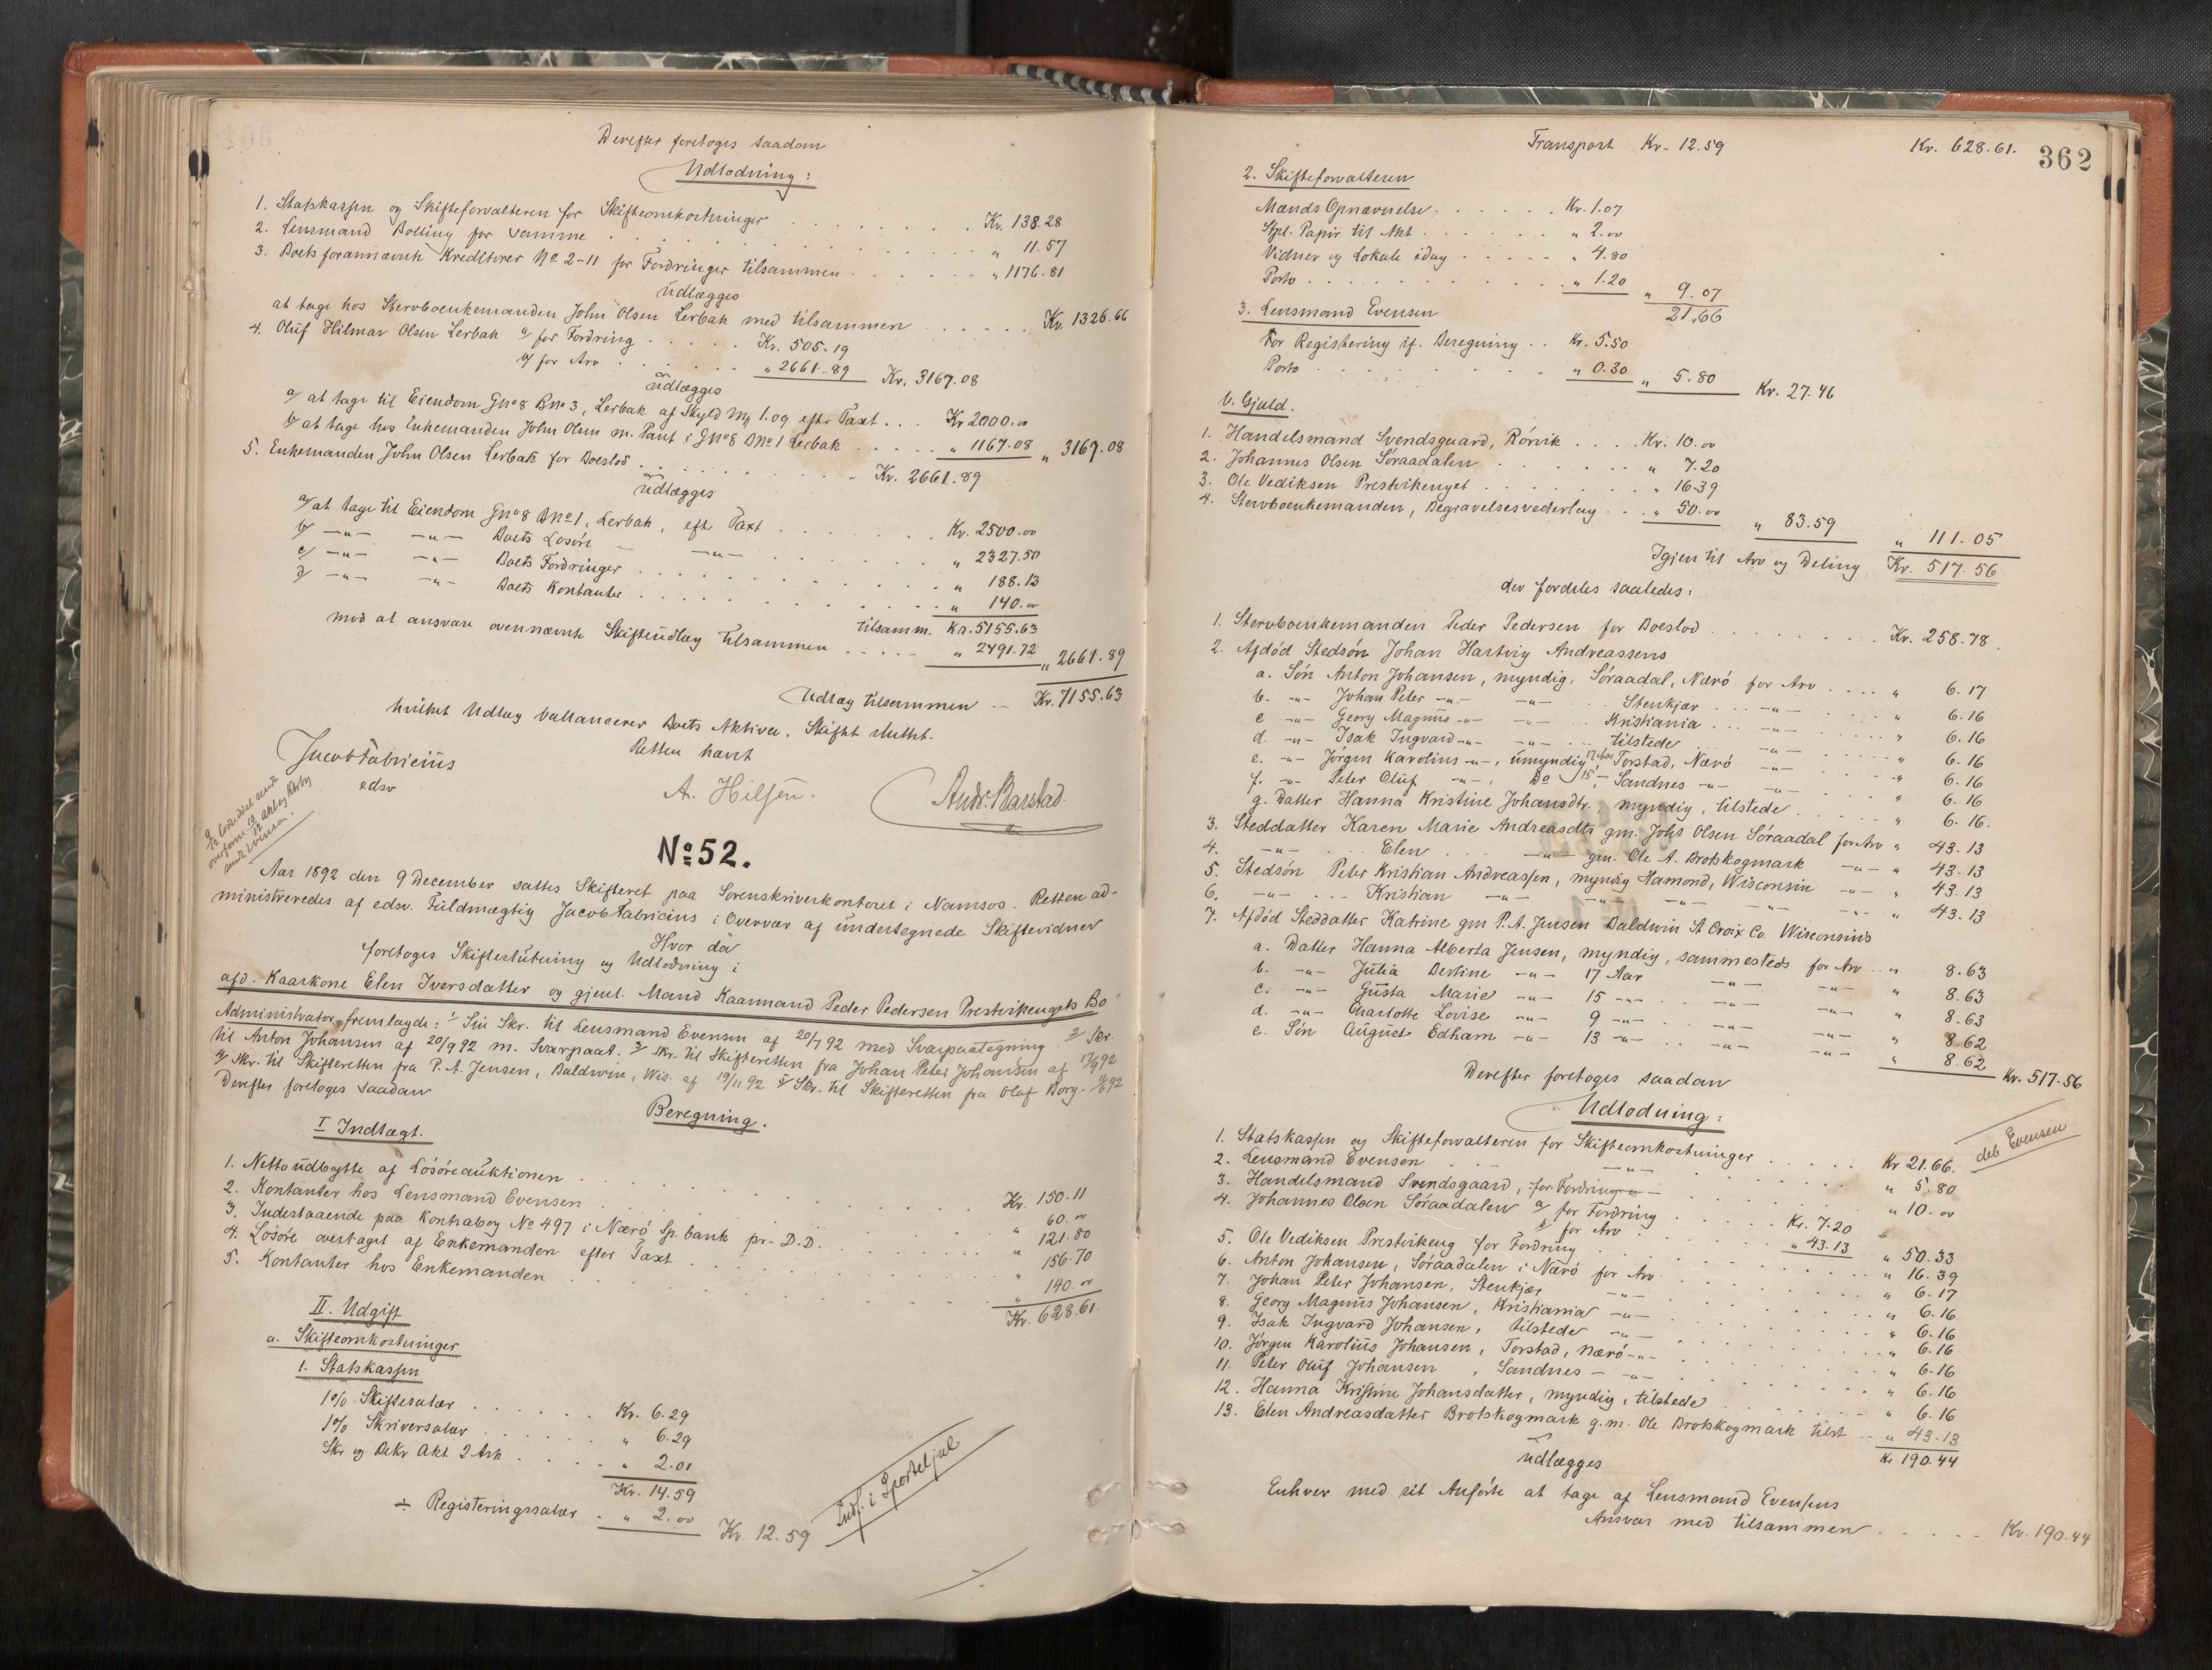 Derefter foretoges saadan
Udlodning:
1. Statskassen og Skifteforvalteren for Skifteomkostninger . . . Kr. 138.28
2. Lensmand Bolling for samme . . . " 11.57
3. Boets forannævnte Kreditorer No 2-11 for Fordringer tilsammen . . . " 1176.81
udlægges
at tage hos Stervboenkemanden John Olsen Lerbak med tilsammen . . . Kr. 1326.66
4. Oluf Hilmar Olsen Lerbak a/ for Fordring . . . Kr. 505.19
b/ for Arv . . . " 2661.89 Kr. 3167.08
udlægges
a/ at tage til Eiendom Gno 8 Bno 3, Lerbak af Skyld M 1.09 efter Taxt . . . Kr 2000.00
b/ at tage hos Enkemanden John Olsen m. Pant i Gno 8 Bno 1 Lerbak . . . " 1167.08 " 3167.08
5. Enkemanden John Olsen Lerbak for Boeslod . . . Kr. 2661.89
udlægges
a/ at tage til Eiendom Gno 8 Bno 1, Lerbak, efter Taxt . . . Kr. 2500.00
b/ -"- -"- Boets Løsøre -"- . . . " 2327.50
c/ -"- -"- Boets Fordringer . . . " 188.13
d/ -"- -"- Boets Kontanter . . . " 140.00
tilsamm. Kr. 5155.63
mod at ansvare ovennævnte Skifteudlæg tilsammen . . . " 2491.72 " 2661.89
Udlæg tilsammen . . Kr. 7155.63
hvilket Udlæg ballancerer Boets Aktiva. Skiftet sluttet.
Retten hævet
Jacob Fabricius
edsv
A. Hilsen.
Andr. Barstad.
No 52.
Aar 1892 den 9 December sattes Skifteret paa Sorenskriverkontoret i Namsos. Retten ad-
ministreredes af edsv. Fuldmægtig Jacob Fabricius i Overvær af undertegnede Skiftevidner
Hvor da
foretoges Skifteslutning og Udlodning i
afd. Kaarkone Elen Iversdatter og gjenl. Mand Kaarmand Peder Pedersen Prestvikengets Bo
Administrator fremlagde: 1/ Sin Skr. til Lensmand Evensen af 20/7 92 med Svarpaategning 2/ Skr.
til Anton Johansen af 20/9 92 m. Svarpaat. 3/ Skr. til Skifteretten fra Johan Peter Johansen af 17/9 92
4/ Skr. til Skifteretten fra P. A. Jensen, Baldwin, Wis. af 19/11 92 5/ Skr. til Skifteretten fra Olaf Borg.
Derefter foretoges saadan
Beregning.
I Indtægt.
1. Netto udbytte af Løsøreauktionen . . . Kr. 150.11
2. Kontanter hos Lensmand Evensen . . . " 60.00
3. Indestaaende paa Kontrabog No 497 i Nærø Sp.bank pr. D.D. . . . " 121.80
4. Løsøre overtaget af Enkemanden efter Taxt . . . " 156.70
5. Kontanter hos Enkemanden . . . " 140.00
Kr. 628.61.
II. Udgift
a. Skifteomkostninger
1. Statskassen
1% Skiftesalær . . . Kr. 6.29
1% Skriversalær . . . " 6.29
Skr og Dekr Akt 2 Ark . . . " 2.01
Kr. 14.59
÷ Registeringssalær . " 2.00 Kr. 12.59
Indf. i Sporteljul
362
Transport Kr. 12.59 Kr. 628.61.
2. Skifteforvalteren
Mænds Opnævnelse . . . Kr. 1.07
Stpl. Papir til Akt . . . " 2.00
Vidner og Lokale idag . . . " 4.80
Porto . . . " 1.20 " 9.07
21.66
3. Lensmand Evensen
For Registering if. Beregning . . Kr. 5.50
Porto . . . " 0.30 " 5.80 Kr. 27.46
b. Gjæld.
1. Handelsmand Svendsgaard, Rørvik . . . Kr. 10.00
2. Johannes Olsen Søraadalen . . . " 7.20
3. Ole Vediksen Prestvikenget . . . " 16.39
4. Stervboenkemanden, Begravelsesvederlag . . . " 50.00 " 83.59 " 111.05
Igjen til Arv og Deling Kr. 517.56
der fordeles saaledes:
1. Stervboenkemanden Peder Pedersen for Boeslod . . . Kr. 258.78
2. Afdød Stedsøn Johan Hartvig Andreassens
a. Søn Anton Johansen, myndig, Søraadal, Nærø for Arv . . . " 6.17
b. -"- Johan Peter -"- -"- Stenkjær . . -"- . . . " 6.16
c -"- Georg Magnus -"- -"- Kristiania . . . -"- . . . " 6.16
d. -"- Isak Ingvard -"- -"- tilstede -"- . . . " 6.16
e. -"- Jørgen Karolius -"-, umyndig 17 Aar Torstad, Nærø -"- " 6.16
f. -"- Peter Oluf -"-, Do 15 -"- Sandnes -"- -"- " 6.16
g. Datter Hanna Kristine Johansdtr. myndig, tilstede . . . " 6.16.
3. Steddatter Karen Marie Andreasdtr gm. Johs Olsen Søraadal for Arv " 43.13
4. -"- Elen -"- gm. Ole A. Brotskogmark -"- " 43.13
5. Stedsøn Peter Kristian Andreassen, myndig Hamond, Wisconsin -"- " 43.13
6. -"- Kristian -"- -"- -"- -"- -"- " 43.13
7. Afdød Steddatter Katrine gm P. A. Jensen Baldwin St Croix Co. Wisconsin's
a. Datter Hanna Alberta Jensen, myndig, sammesteds for Arv . . " 8.63
b. -"- Julia Bertine -"- 17 Aar -"- -"- " 8.63
c. -"- Gusta Marie -"- 15 -"- -"- -"- " 8.63
d. -"- Charlotte Lovise -"- 9 -"- -"- -"- " 8.62
e. Søn August Edham -"- 13 -"- -"- -"- " 8.62 Kr. 517.56
Derefter foretoges saadan
Udlodning:
deb Evensen
1. Statskassen og Skifteforvalteren for Skifteomkostninger . . . Kr 21.66.
2. Lensmand Evensen -"- . . . " 5.80
3. Handelsmand Svendsgaard, for Fordring . . . " 10.00
4. Johannes Olsen Søraadalen a/ for Fordring . . . Kr. 7.20
b/ for Arv . . . " 43.13 " 50.33
5. Ole Vediksen Prestvikeng for Fordring . . . " 16.39
6. Anton Johansen, Søraadalen i Nærø for Arv . . . " 6.17
7. Johan Peter Johansen, Stenkjær -"- . . . " 6.16
8. Georg Magnus Johansen, Kristiania -"- . . . " 6.16
9. Isak Ingvard Johansen, tilstede -"- . . . " 6.16
10. Jørgen Karolius Johansen, Torstad, Nærø -"- . . . " 6.16
11. Peter Oluf Johansen, Sandnes -"- . . . " 6.16
12. Hanna Kristine Johansdatter, myndig, tilstede . . . " 6.16
13. Elen Andreasdatter Brotskogmark g.m. Ole Brotskogmark tilst . . " 43.13
Kr 190.44
udlægges
Enhver med sit Anførte at tage af Lensmand Evensens
Ansvar med tilsammen . . . Kr. 190.44